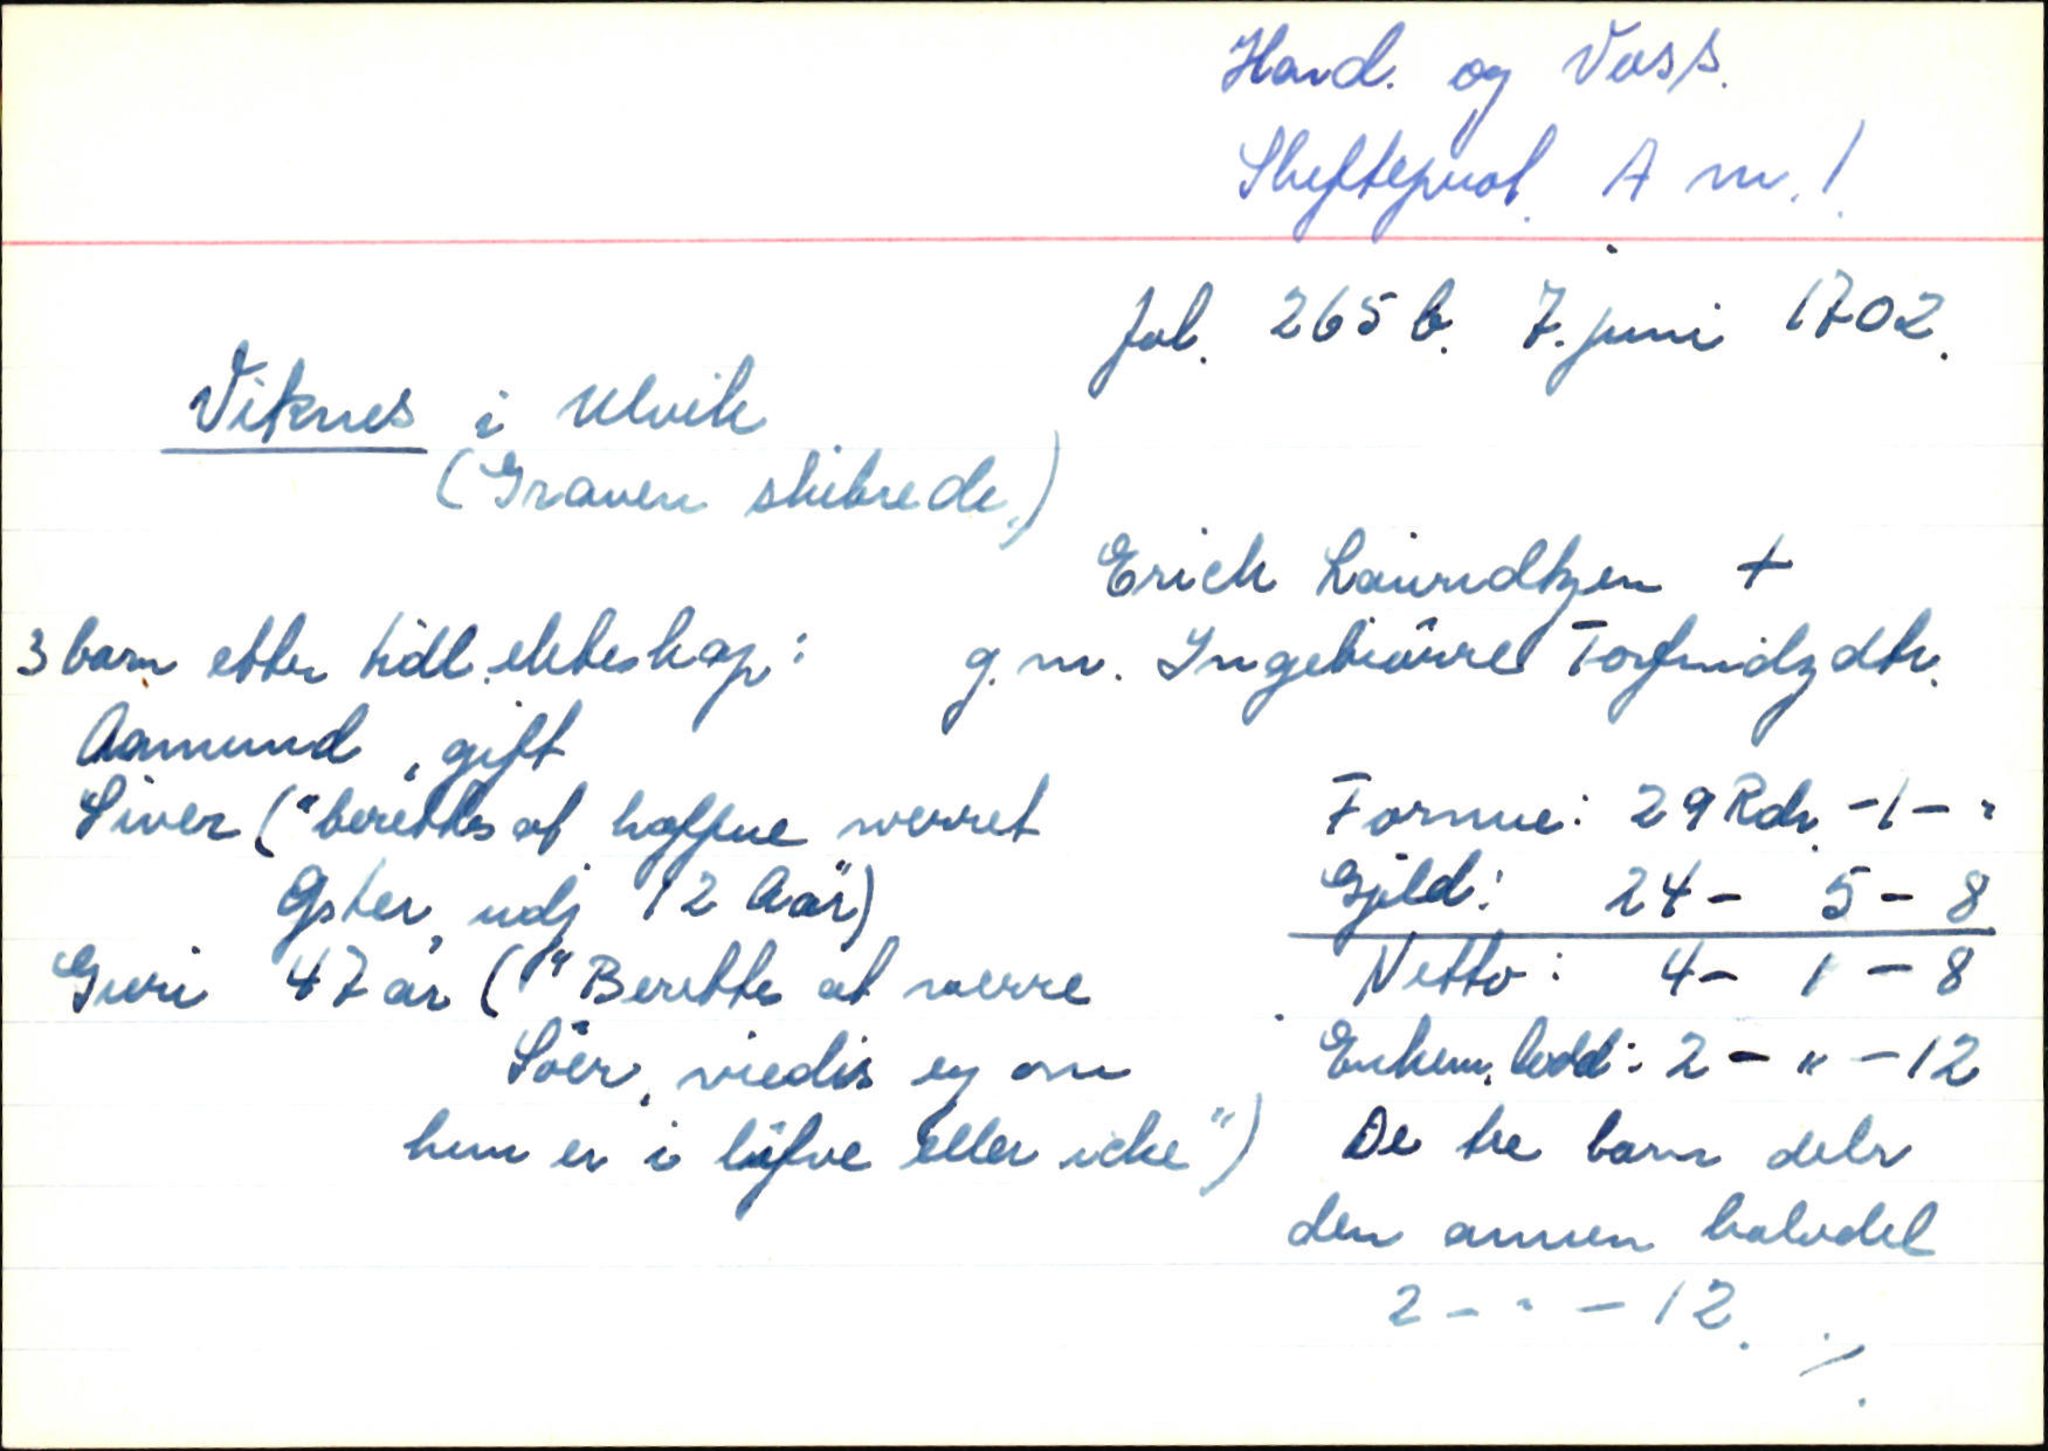 Hard. og Voss.
Skifteprot. A nr. 1.
fol. 265 b. 7. juni 1702.
Viknes i Ulvik
(Graven skibrede.)
Erich Lauridtzen +
g. m. Ingebiörre Torfindzdtr.
3 barn etter tidl. ekteskap:
Aamund, gift
Siver ("berettes at haffue werret
Øster, udj 12 Aar")
Guri 47 år ("Berettes at werre
Söer, viedis ey om
hun er i lifve eller icke")
Formue: 29 Rdr. - 1 - "
Gjeld: 24 - 5 - 8
Netto: 4 - 1 - 8
Enkens lodd: 2 - " - 12
De tre barn deler
den annen halvdel
2 - " - 12.